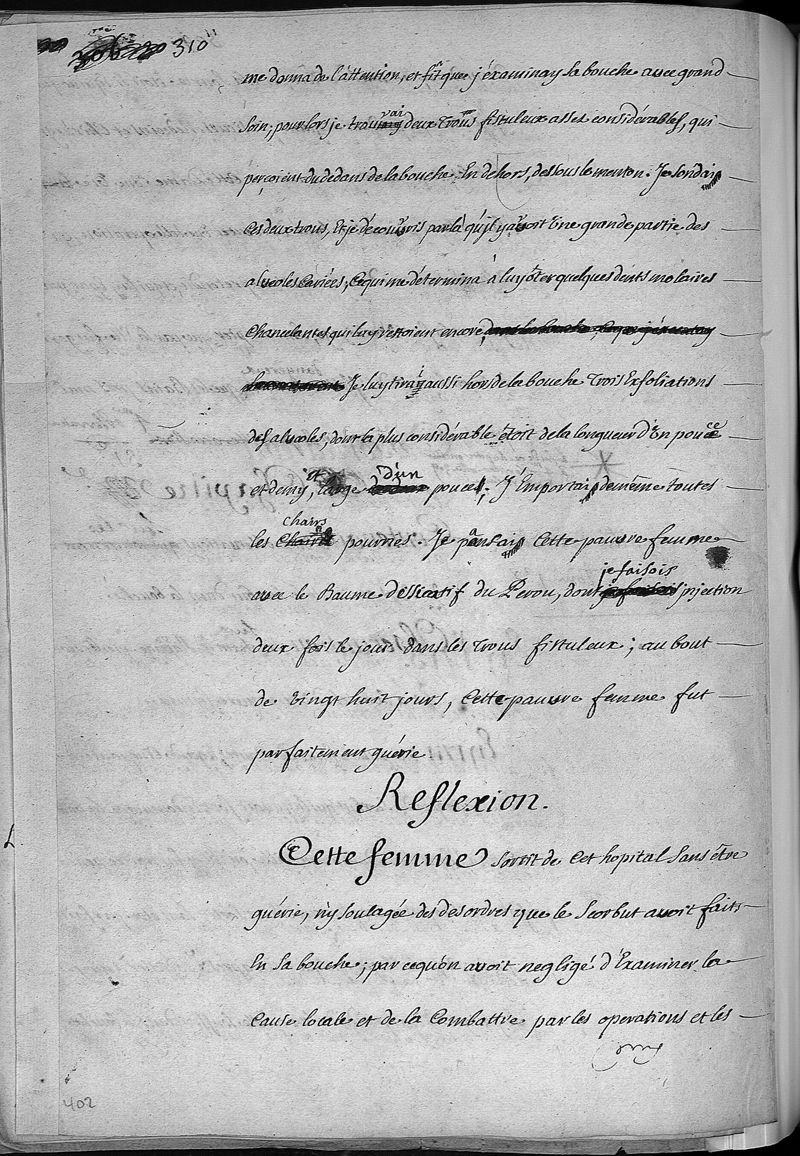 310
me donna de l'attention, et fit que j'éxaminay sa bouche avec grand
soin; pour lors je trouvai deux trous fistuleux assez considérables, qui
perçoient du dedans de la bouche En dehors, dessous le menton. Je sondai
Ces deux trous, Et je découvris par là qu'jl y avoit Une grande partie des
alveoles Cariées, Ce qui me détermina à luy ôter quelques dents molaires
Chancelantes qui luy restoient encore,
Je luy tirai aussi hors de la bouche Trois Exfoliations
des alveoles, dont la plus considérable étoit de la longueur d'Un pouce
et demy, et large d'un pouce; J'Emportai de même toutes
les Chairs pourries. Je pansai Cette pauvre femme
avec le Baume déssicatif du Perou, dont je faisois injection
deux fois le jour dans les Trous fistuleux; au bout
de Vingt huit jours, Cette pauvre femme fut
parfaitement guérie
Reflexion.
Cette femme sortit de Cet hopital sans être
guérie, n'y soulagée des desordres que le Scorbut avoit faits
En sa bouche; parce qu'on avoit negligé d'Examiner la
Cause locale et de la Combattre par les operations et les
402